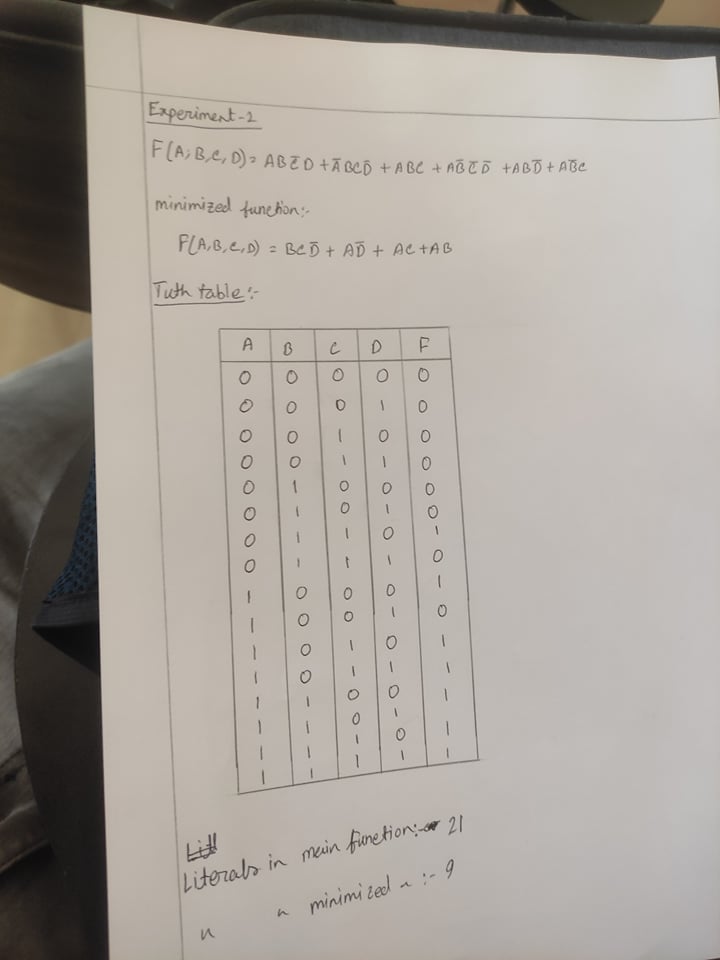 Experiment-2
F(A,B,C,D) = ABC̄D + ĀBCD̄ + ABC + AB̄C̄D̄ + ABD̄ + AB̄C
minimized function:-
F(A,B,C,D) = BCD̄ + AD̄ + AC + AB
Tuth table:-
A B C D F
0 0 0 0 0
0 0 0 1 0
0 0 1 0 0
0 0 1 1 0
0 1 0 0 0
0 1 0 1 0
0 1 1 0 1
0 1 1 1 0
1 0 0 0 1
1 0 0 1 0
1 0 1 0 1
1 0 1 1 1
1 1 0 0 1
1 1 0 1
1 1 1 0 1
1 1 1 1 1
Literals in main function:- 21
" " minimized " :- 9